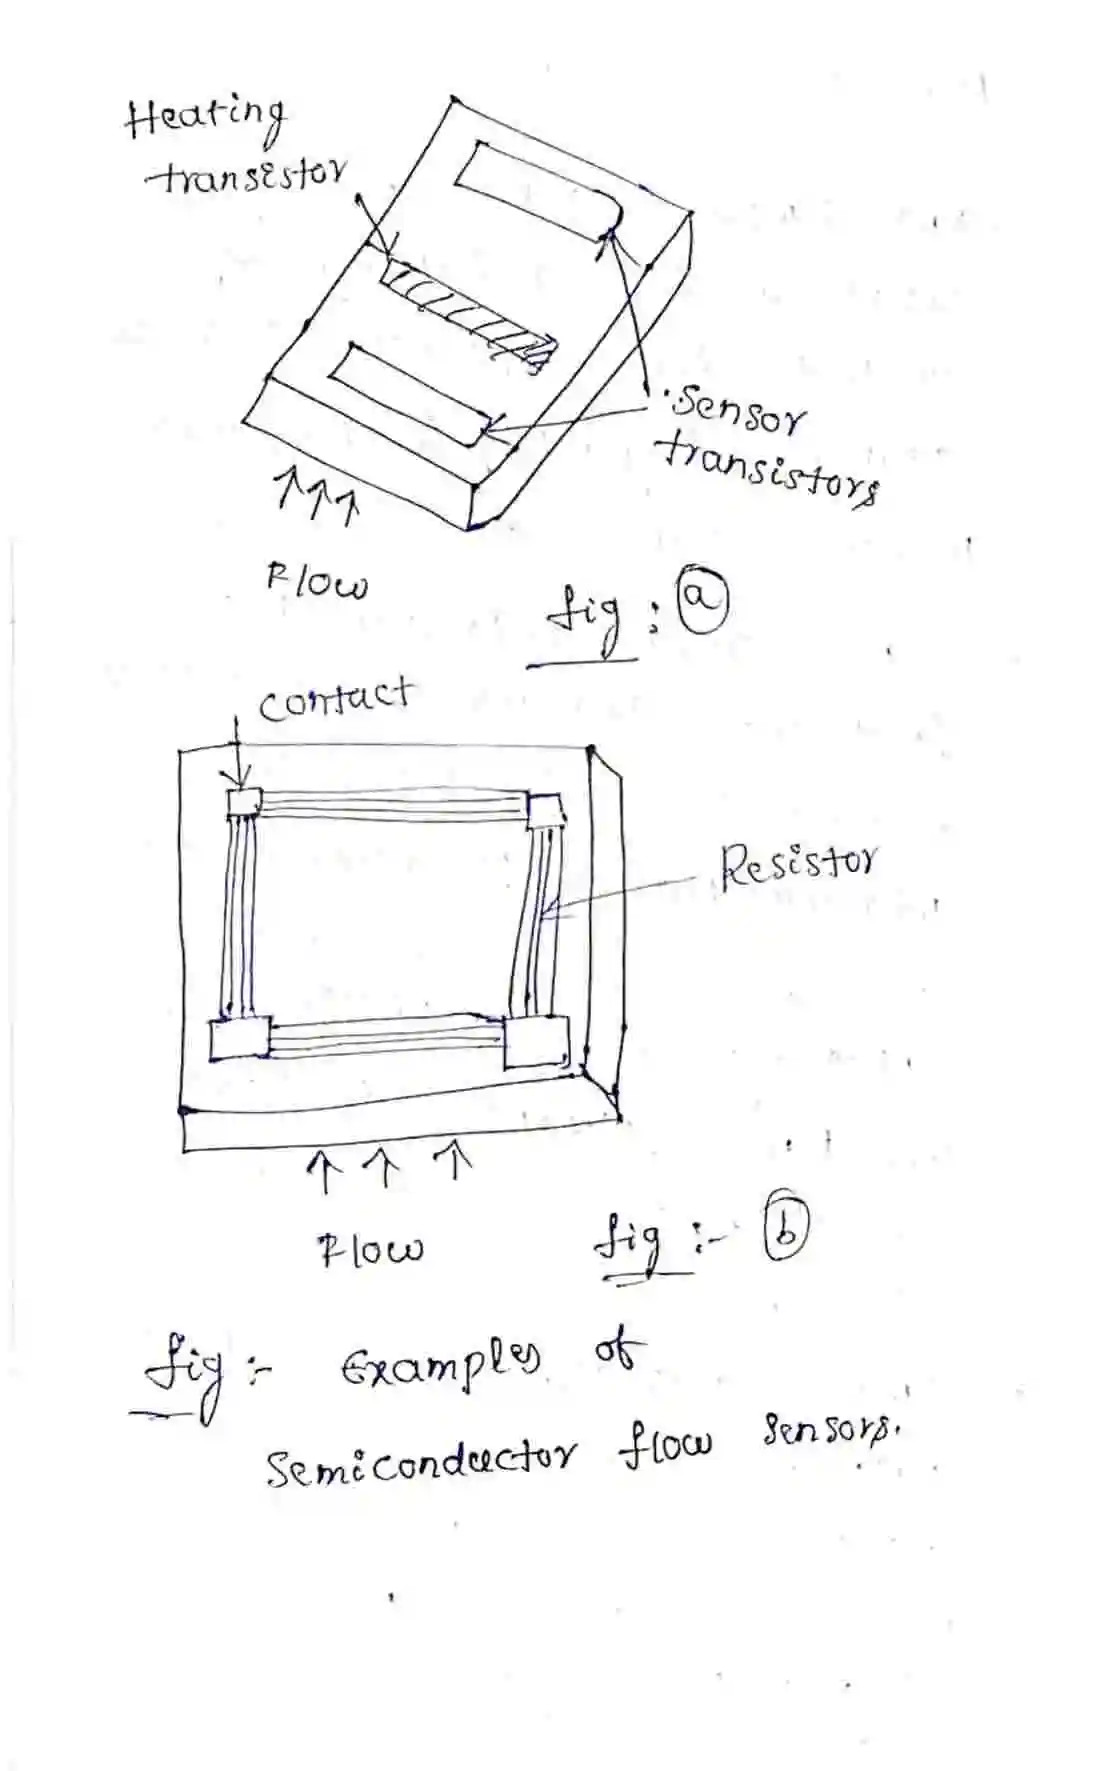 Heating
transistor
Sensor
transistors
Flow
fig : a
contact
Resistor
Flow
fig :- b
fig :- Examples of
Semiconductor flow sensors.